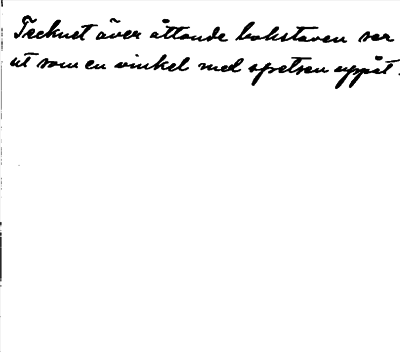 Tecknet över åttonde bokstaven ser
ut som en vinkel med spetsen uppåt.